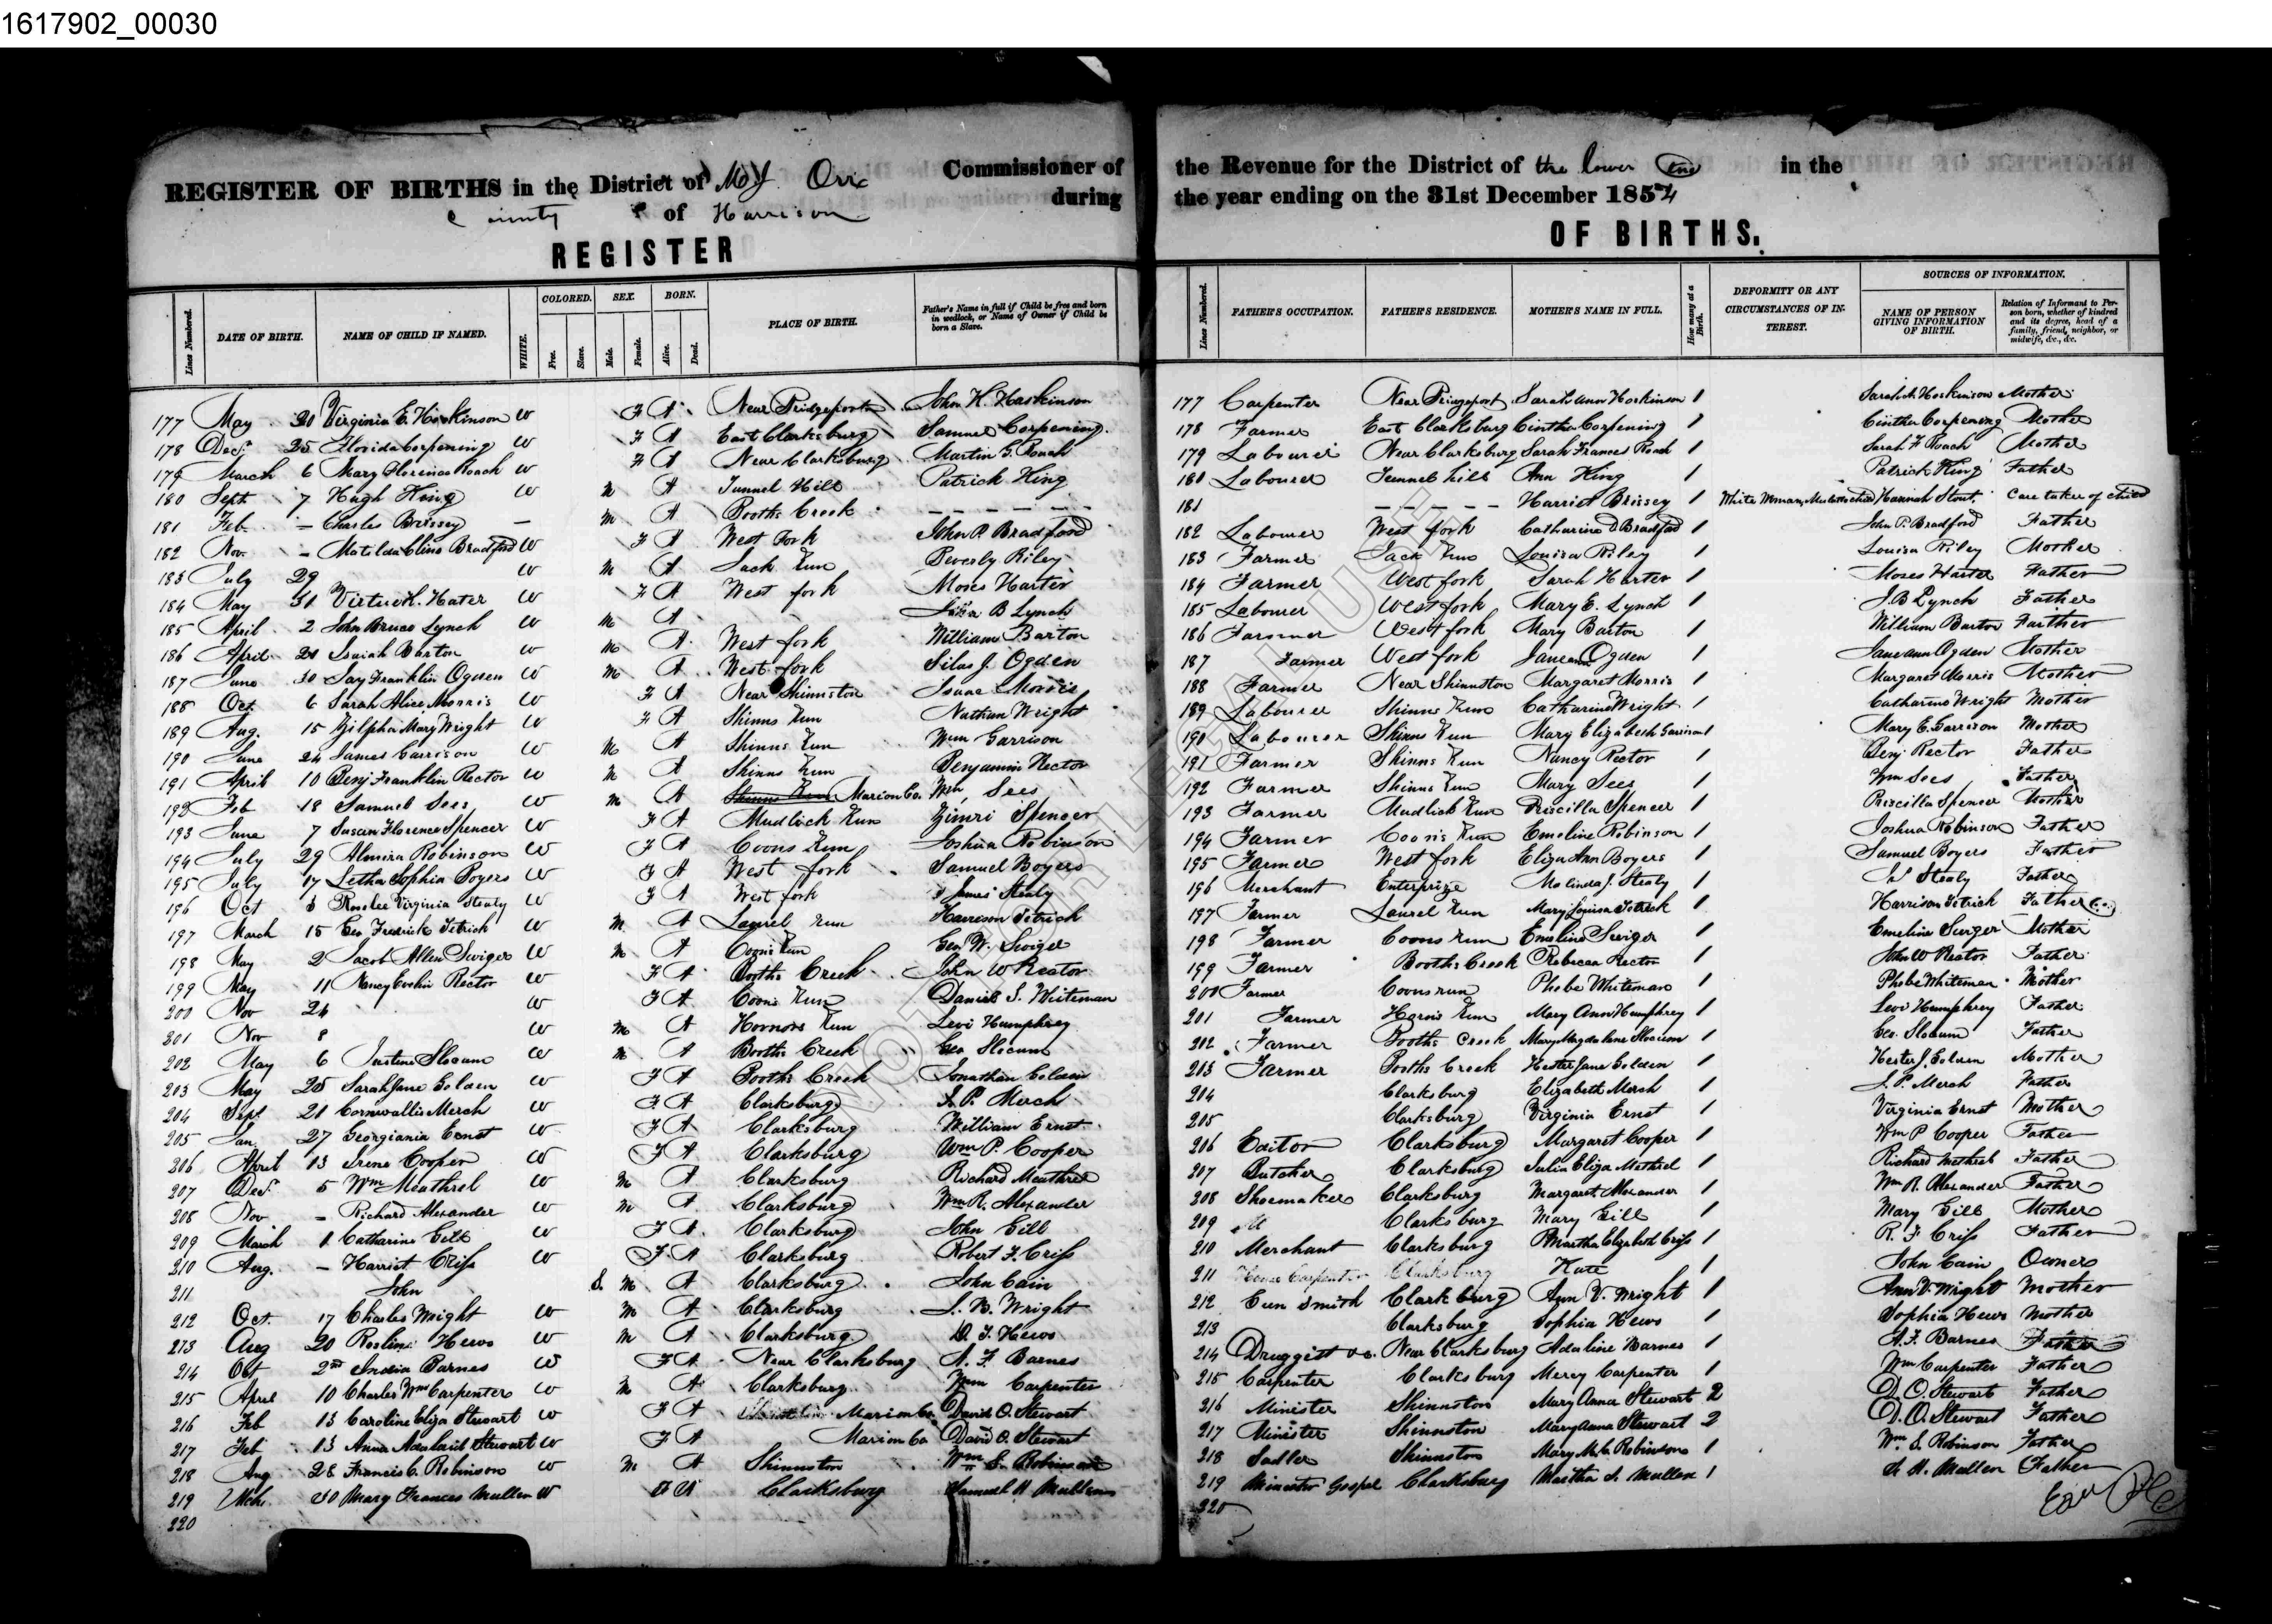 1617902_00030
REGISTER OF BIRTHS in the District of M. J. Orr Commissioner of the Revenue for the District of the lower End in the
County of Harrison during the year ending on the 31st December 1854
REGISTER OF BIRTHS.
Lines Numbered. DATE OF BIRTH. NAME OF CHILD IF NAMED. WHITE. COLORED. Free. Slave. SEX. Male. Female. BORN. Alive. Dead. PLACE OF BIRTH. Father's Name in full if Child be free and born in wedlock, or Name of Owner if Child be born a Slave. Lines Numbered. FATHER'S OCCUPATION. FATHER'S RESIDENCE. MOTHER'S NAME IN FULL. How many at a Birth. DEFORMITY OR ANY CIRCUMSTANCES OF INTEREST. SOURCES OF INFORMATION. NAME OF PERSON GIVING INFORMATION OF BIRTH. Relation of Informant to Person born, whether of kindred and its degree, head of a family, friend, neighbor, or midwife, &c., &c.
177 May 20 Virginia E. Hoskinson W F A Near Bridgeport John H. Hoskinson 177 Carpenter Near Bridgeport Sarah Ann Hoskinson 1 Sarah A Hoskinson Mother
178 Dec. 25 Florida Corpening W F A East Clarksburg Samuel Corpening 178 Farmer East Clarksburg Cintha Corpening 1 Cintha Corpening Mother
179 March 6 Mary Florence Roach W F A Near Clarksburg Martin G. Roach 179 Labourer Near Clarksburg Sarah Frances Roach 1 Sarah F Roach Mother
180 Sept. 7 Hugh King W M A Tunnel Hill Patrick King 180 Labourer Tunnel hill Ann King 1 Patrick King Father
181 Feb. – Charles Brissey – M A Booths Creek – – – – – – 181 – – – – – Harriet Brissey 1 White Woman, Mulatto child Hannah Stout Care taker of child
182 Nov. – Matilda Cline Bradford W F A West Fork John P. Bradford 182 Labourer West fork Catharine D Bradford 1 John P. Bradford Father
183 July 29 W M A Jack Run Beverly Riley 183 Farmer Jack Run Louisa Riley 1 Louisa Riley Mother
184 May 31 Hater W F A West fork Moses Harter 184 Farmer West fork Sarah Harter 1 Moses Harter Father
185 April 2 John Bruce Lynch W M A B Lynch 185 Labourer West fork Mary E. Lynch 1 J. B Lynch Father
186 April 21 Isaiah Barton W M A West fork William Barton 186 Farmer West fork Mary Barton 1 William Barton Father
187 June 30 Jay Franklin Ogden W M A West fork Silas J. Ogden 187 Farmer West fork Jane ann Ogden 1 Jane ann Ogden Mother
188 Oct. 6 Sarah Alice Morris W F A Near Shinnston Isaac Morris 188 Farmer Near Shinnston Margaret Morris 1 Margaret Morris Mother
189 Aug. 15 Zilpha Mary Wright W F A Shinns Run Nathan Wright 189 Labourer Shinns Run Catharine Wright 1 Catharine Wright Mother
190 June 24 James Garrison W M A Shinns Run Wm Garrison 190 Labourer Shinns Run Mary Elizabeth Garrison 1 Mary E. Garrison Mother
191 April 10 Benj. Franklin Rector W M A Shinns Run Benjamin Rector 191 Farmer Shinns Run Nancy Rector 1 Benj. Rector Father
192 Feb 18 Samuel Sees W M A Shinns Run Marion Co. Wm. Sees 192 Farmer Shinns Run Mary Sees 1 Wm Sees Father
193 June 7 Susan Florence Spencer W F A Mudlick Run Zimri Spencer 193 Farmer Mudlick Run Priscilla Spencer 1 Priscilla Spencer Mother
194 July 29 Almira Robinson W F A Coons Run Joshua Robinson 194 Farmer Coon's Run Emeline Robinson 1 Joshua Robinson Father
195 July 17 Letha Sophia Boyers W F A West fork Samuel Boyers 195 Farmer West fork Eliza Ann Boyers 1 Samuel Boyers Father
196 Oct Virginia Stealy W F A West fork James Stealy 196 Merchant Enterprize Malinda J. Stealy 1 Stealy Father
197 March 15 Geo. Fredrick Tetrick W M A Laurel Run Harrison Tetrick 197 Farmer Laurel Run Mary Louisa Tetrick 1 Harrison Tetrick Father
198 May 2 Jacob Allen Swiger W M A Coons Run Geo W. Swiger 198 Farmer Coons run Emeline Swiger 1 Emeline Swiger Mother
199 May 11 Nancy Rector W F A Booths Creek John W Rector 199 Farmer Booths Creek Rebecca Rector 1 John W Rector Father
200 Nov 24 W F A Coons Run Daniel S. Whiteman 200 Farmer Coons run Phebe Whiteman 1 Phebe Whiteman Mother
201 Nov 8 W M A Run Levi Humphrey 201 Farmer Run Mary Ann Humphrey 1 Levi Humphrey Father
202 May 6 Slocum W M A Booths Creek Geo Slocum 202 Farmer Booths Creek Mary Magdalene Slocum 1 Geo. Slocum Father
203 May 28 Sarah Jane Golden W F A Booths Creek Jonathan Golden 203 Farmer Booths Creek Hester Jane Golden 1 Hester J. Golden Mother
204 Sept. 21 Cornwallis Merch W F A Clarksburg J. P. Merch 204 Clarksburg Elizabeth Merch 1 J. P. Merch Father
205 Jan. 27 Georgiania Ernst W F A Clarksburg William Ernst 205 Clarksburg Virginia Ernst 1 Virginia Ernst Mother
206 April 13 Irene Cooper W F A Clarksburg Wm P. Cooper 206 Editor Clarksburg Margaret Cooper 1 Wm P Cooper Father
207 Dec. 5 Wm Meathrel W M A Clarksburg Richard Meathrel 207 Butcher Clarksburg Julia Eliza Methrel 1 Richard Methrel Father
208 Nov – Richard Alexander W M A Clarksburg Wm R. Alexander 208 Shoemaker Clarksburg Margaret Alexander 1 Wm. R. Alexander Father
209 March 1 Catharine Gill W F A Clarksburg John Gill 209 Clarksburg Mary Gill 1 Mary Gill Mother
210 Aug. – Harriet Criss W F A Clarksburg Robert F. Criss 210 Merchant Clarksburg Martha Elizabeth Criss 1 R. F Criss Father
211 John S. M A Clarksburg John Cain 211 House Carpenter Clarksburg Kate 1 John Cain Owner
212 Oct. 17 Charles Wright W M A Clarksburg Wright 212 Gun Smith Clarksburg Ann V. Wright 1 Ann V. Wright Mother
213 Aug 20 Roslin Hews W M A Clarksburg D. T. Hews 213 Clarksburg Sophia Hews 1 Sophia Hews Mother
214 Oct 2nd India Barnes W F A Near Clarksburg A. F. Barnes 214 Druggist &c. Near Clarksburg Adaline Barnes 1 A. F. Barnes Father
215 April 10 Charles Wm Carpenter W M A Clarksburg Wm Carpenter 215 Carpenter Clarksburg Mercy Carpenter 1 Wm Carpenter Father
216 Feb 13 Caroline Eliza Stewart W F A Marion Co. David O. Stewart 216 Minister Shinnston Mary Anna Stewart 2 D. O. Stewart Father
217 Feb 13 Anna Adalaid Stewart W F A Marion Co David O. Stewart 217 Minister Shinnston Mary Anna Stewart 2 D. O. Stewart Father
218 Aug 28 Francis C. Robinson W M A Shinnston Wm S. Robinson 218 Sadler Shinnston Mary M. C. Robinson 1 Wm. S. Robinson Father
219 Mch. 30 Mary Frances Mullen W F A Clarksburg Samuel H Mullen 219 Minister Gospel Clarksburg Martha A. Mullen 1 S. H. Mullen Father
220 220